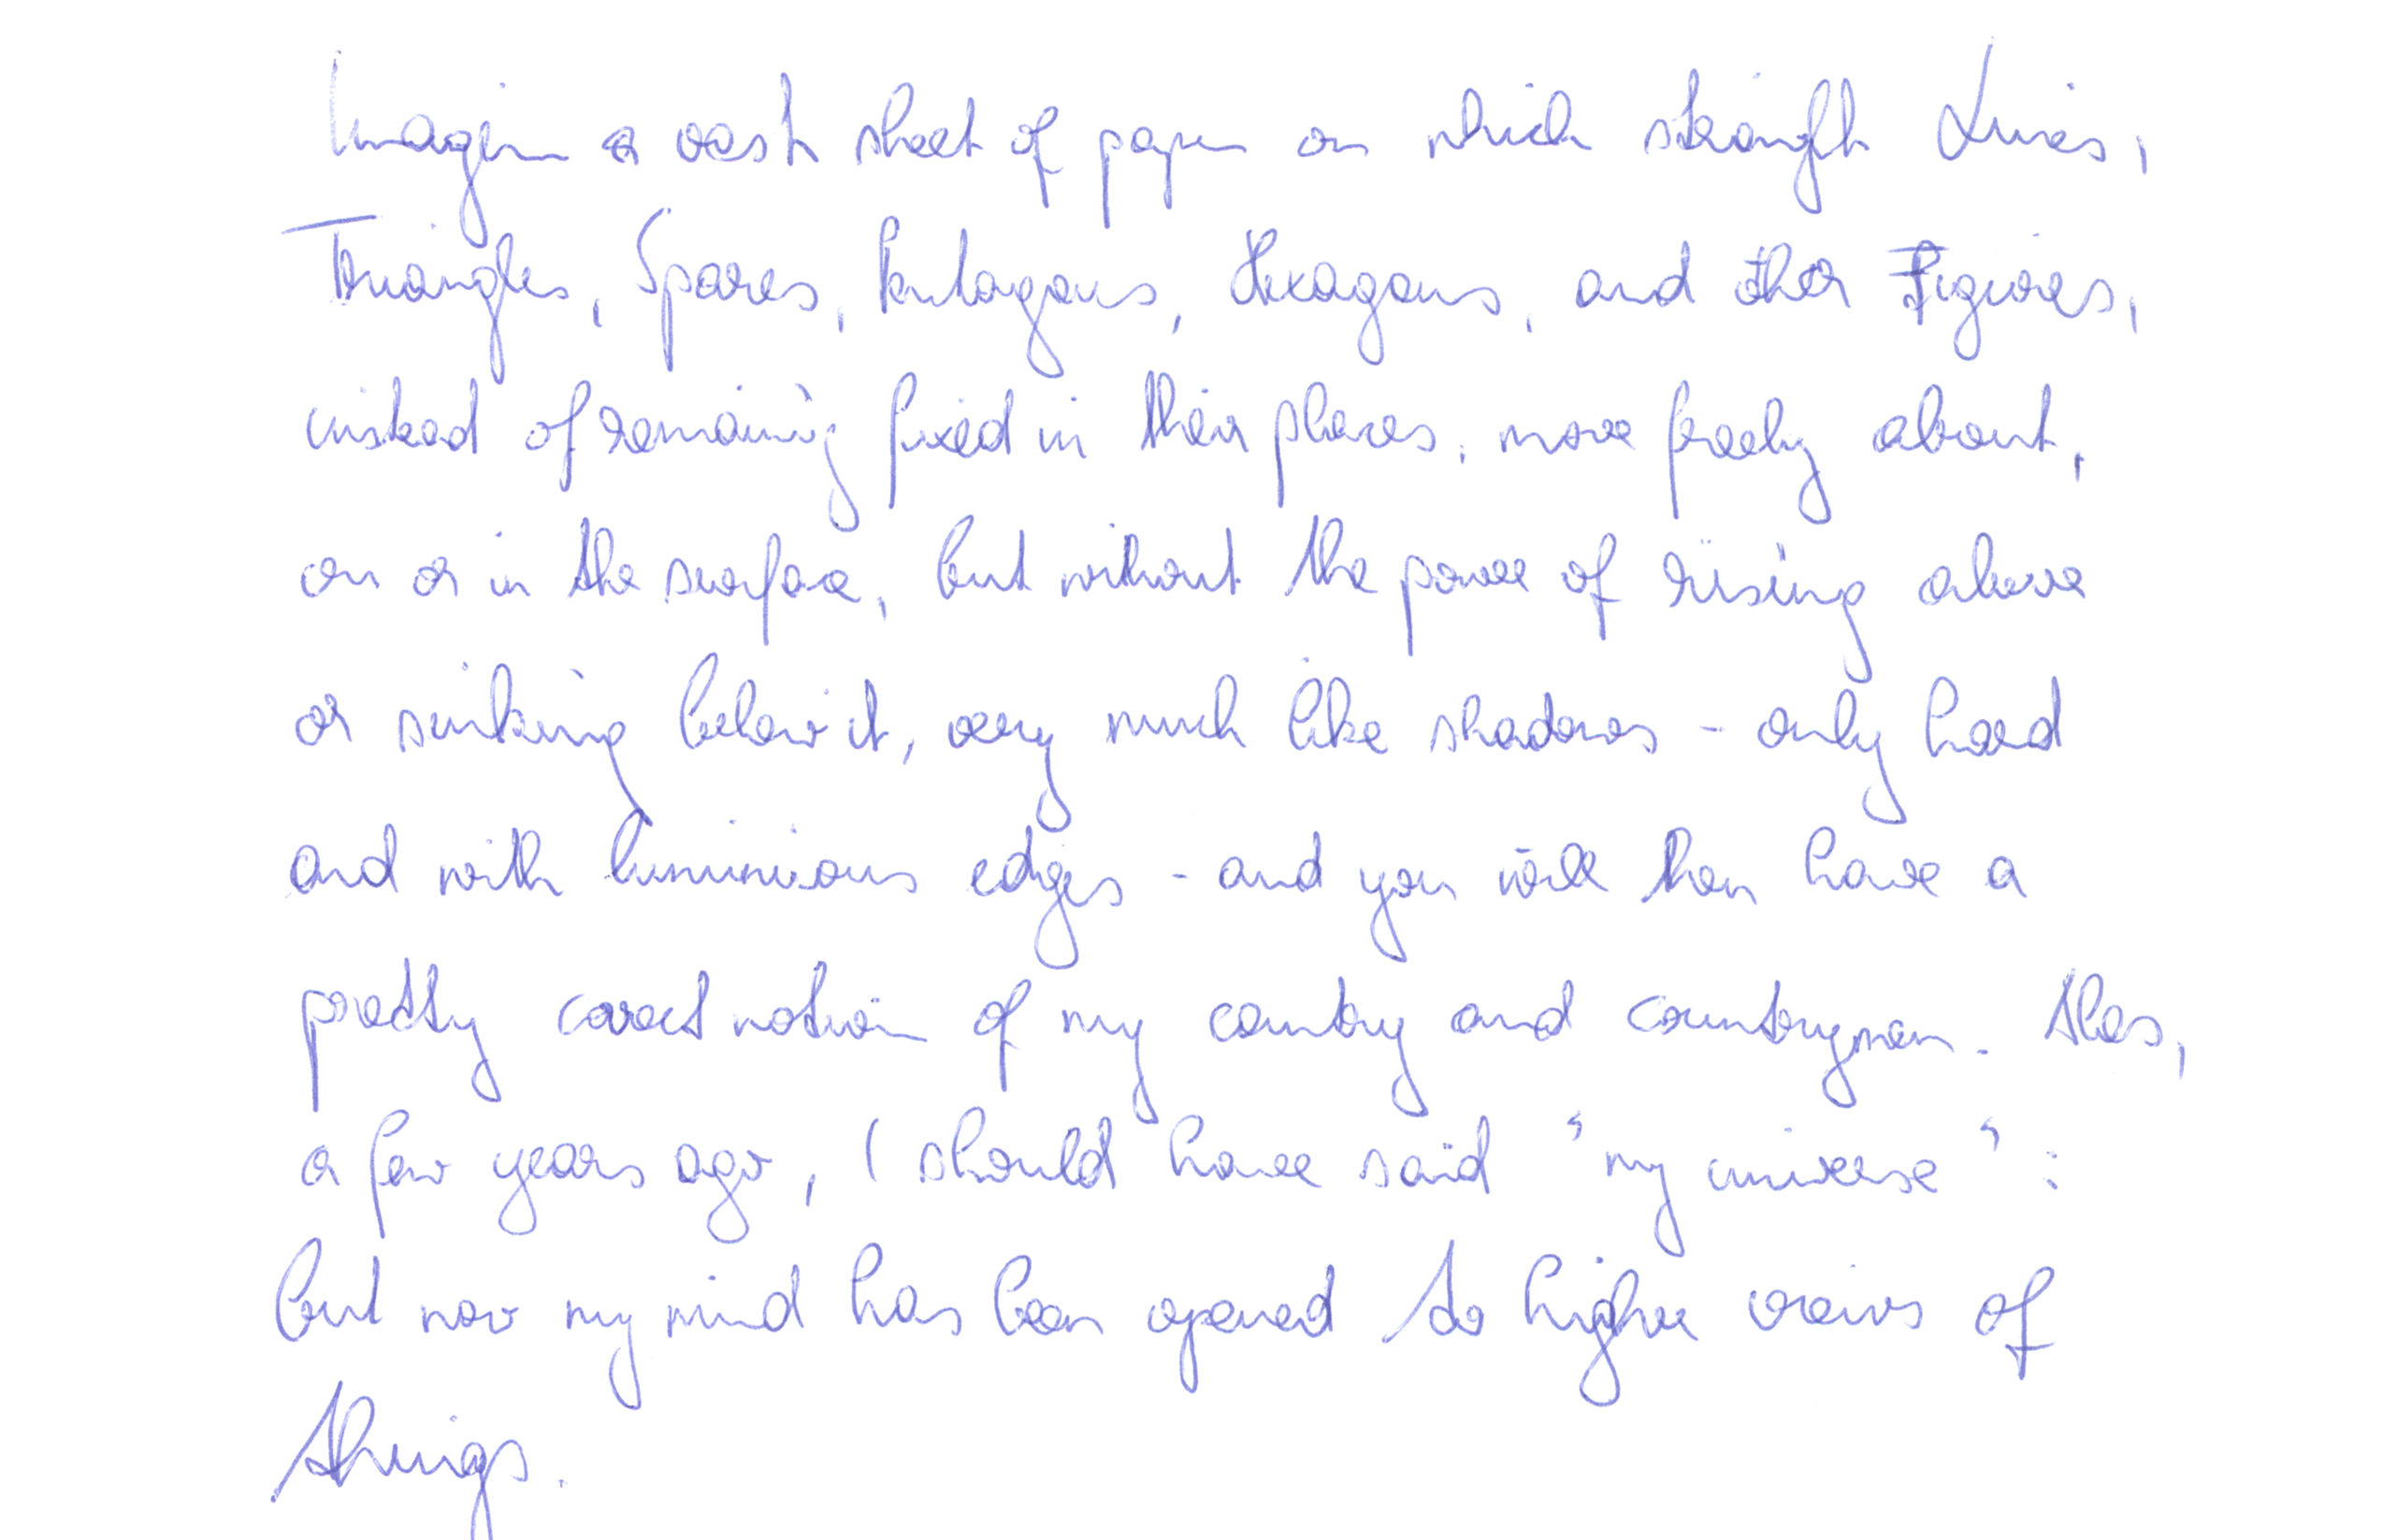 Imagine a vast sheet of paper on which straight Lines,
Triangles, Squares, Pentagons, Hexagons, and other Figures,
instead of remaining fixed in their places, move freely about,
on or in the surface, but without the power of rising above
or sinking below it, very much like shadows - only hard
and with luminious edges - and you will then have a
pretty correct notion of my country and countrymen. Alas,
a few years ago, I should have said "my universe" :
but now my mind has been opened to higher views of
things.